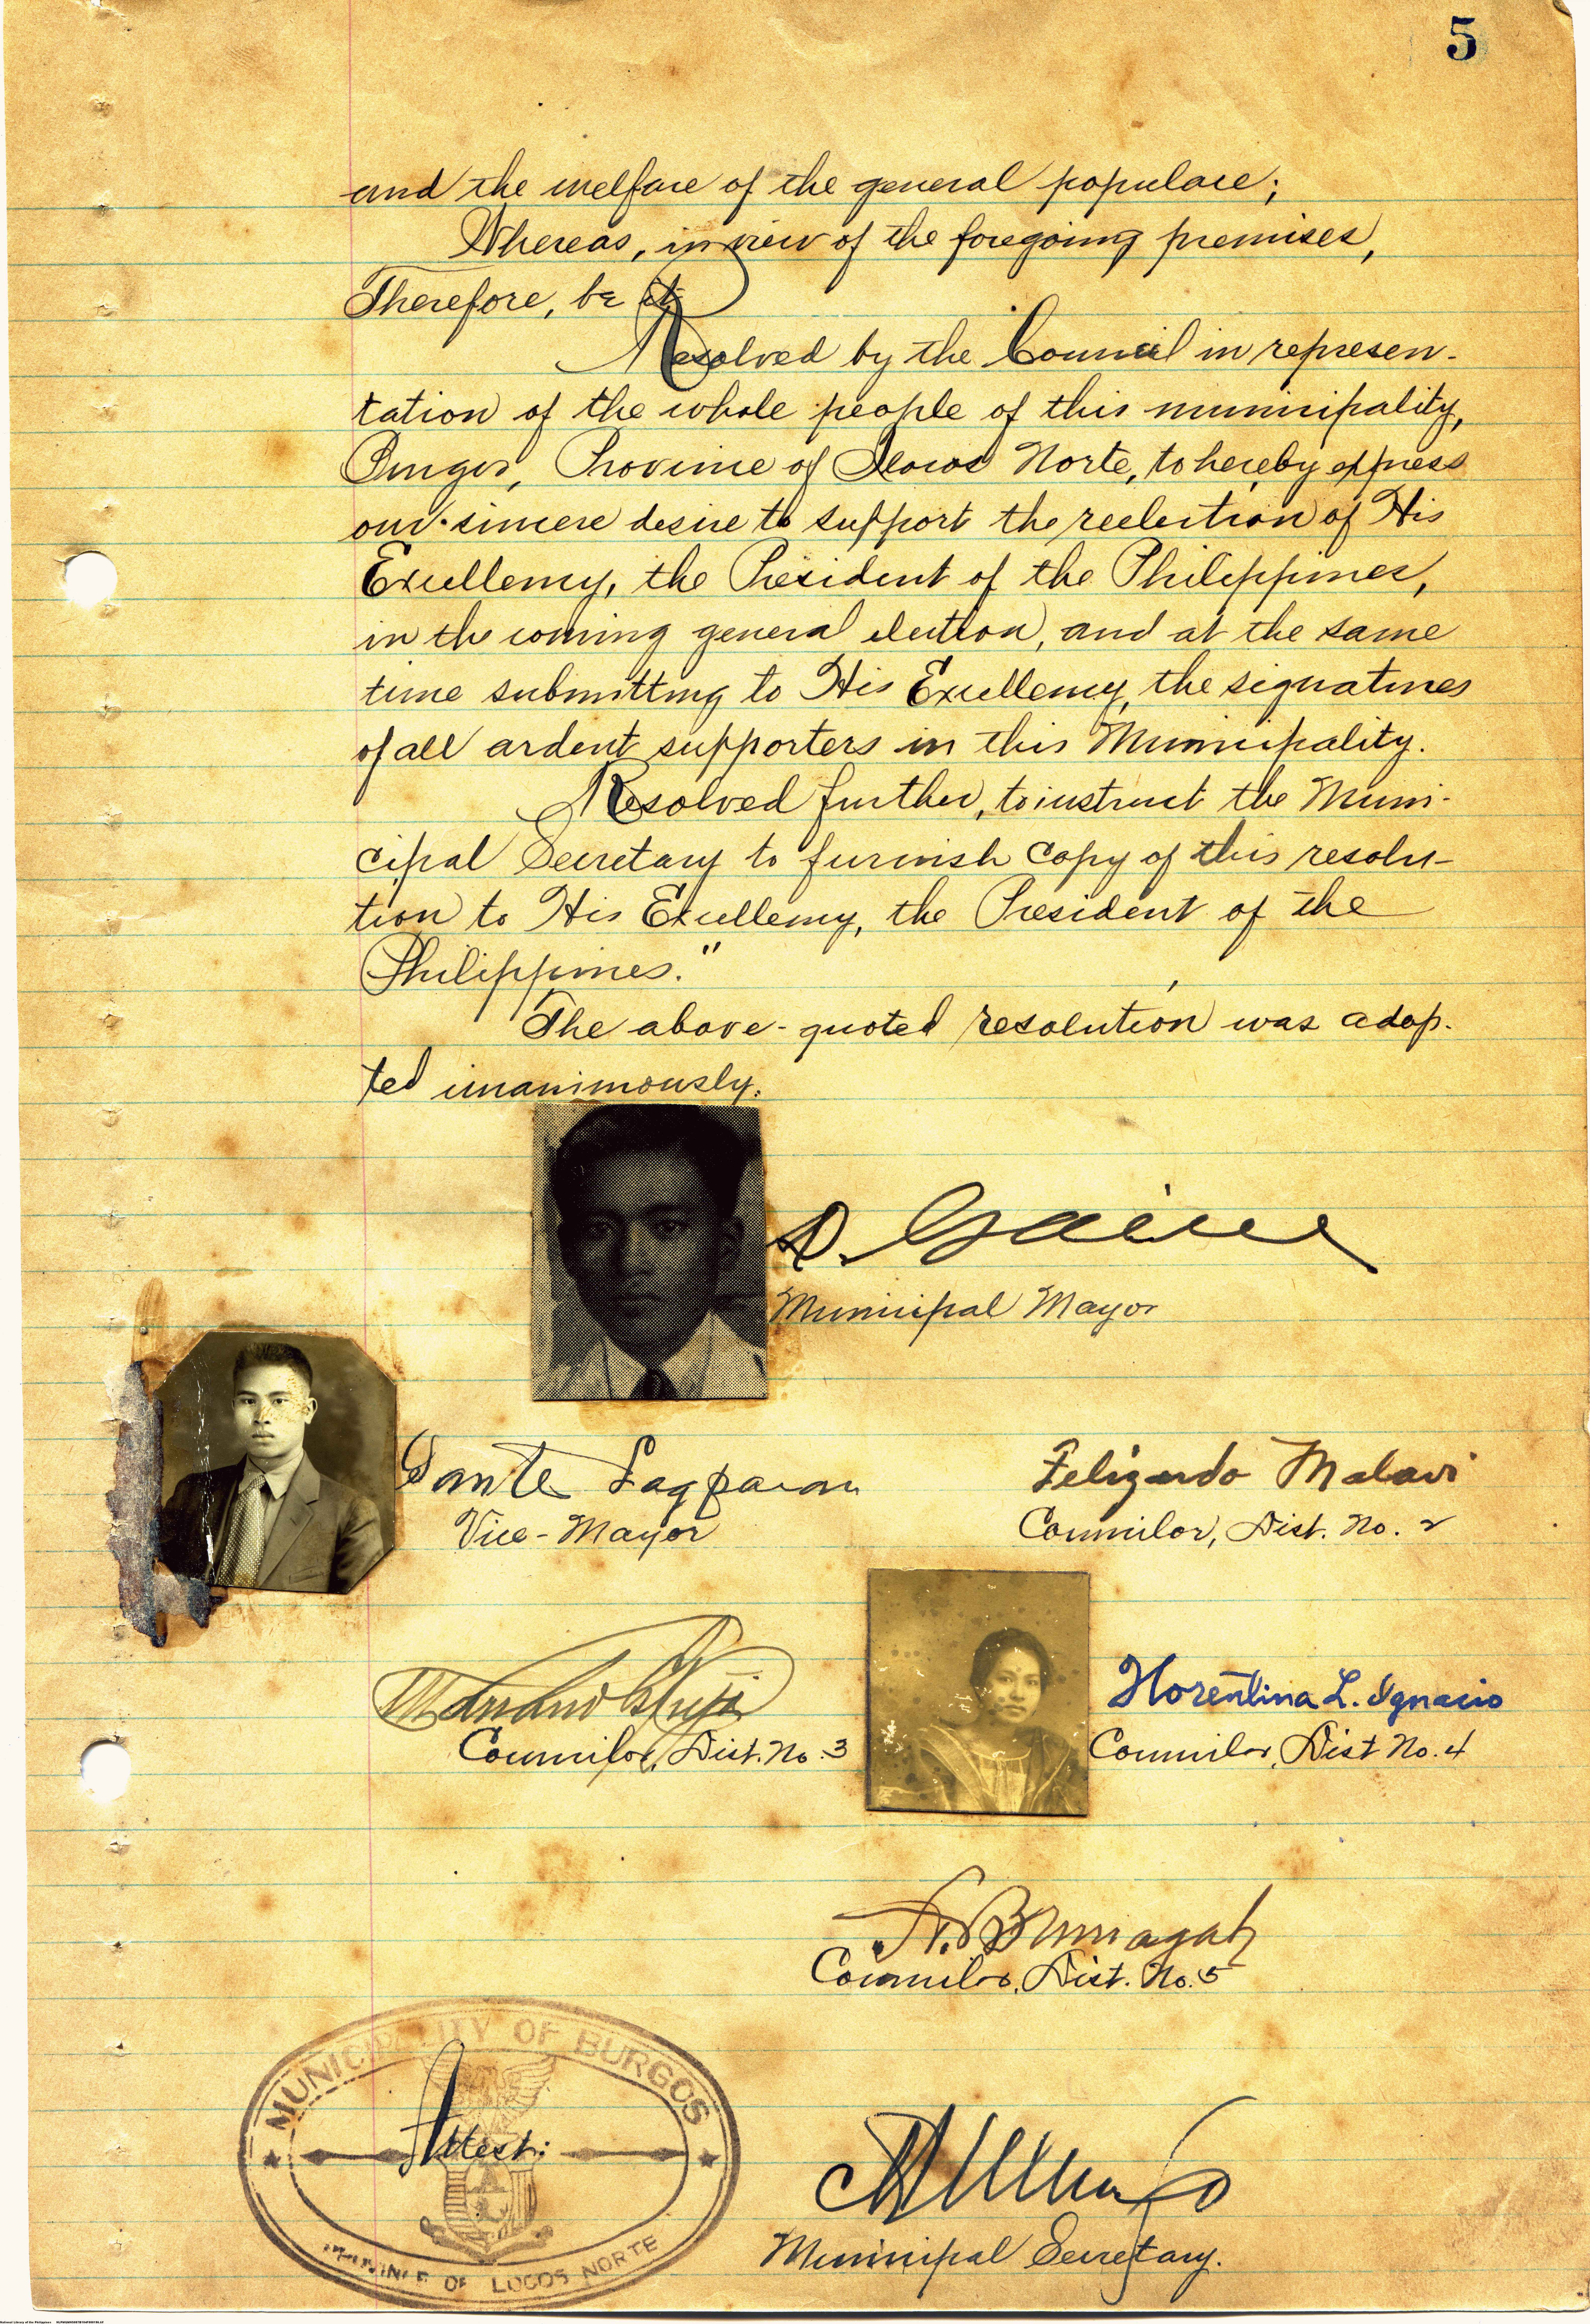 5
and the welfare of the general populace;
Whereas, in view of the foregoing premises,
Therefore, be it
Resolved by the Council in represen-
tation of the whole people of this municipality,
Burgos, Province of Ilocos Norte, to hereby express
our sincere desire to support the reelection of His
Excellency, the President of the Philippines,
in the coming general election, and at the same
time submitting to His Excellency, the signatures
of all ardent supporters in this Municipality.
Resolved further, to instruct the Muni-
cipal Secretary to furnish copy of this resolu-
tion to His Excellency, the President of the
Philippines."
The above-quoted resolution was adop-
ted unanimously.
Municipal Mayor
Vice-Mayor
Felizardo Malavi
Councilor, Dist. No. 2
Councilor, Dist. No. 3
Florentina L. Ignacio
Councilor, Dist No. 4
Councilor, Dist. No. 5
MUNICIPALITY OF BURGOS
Attest:
PROVINCE OF ILOCOS NORTE
Municipal Secretary.